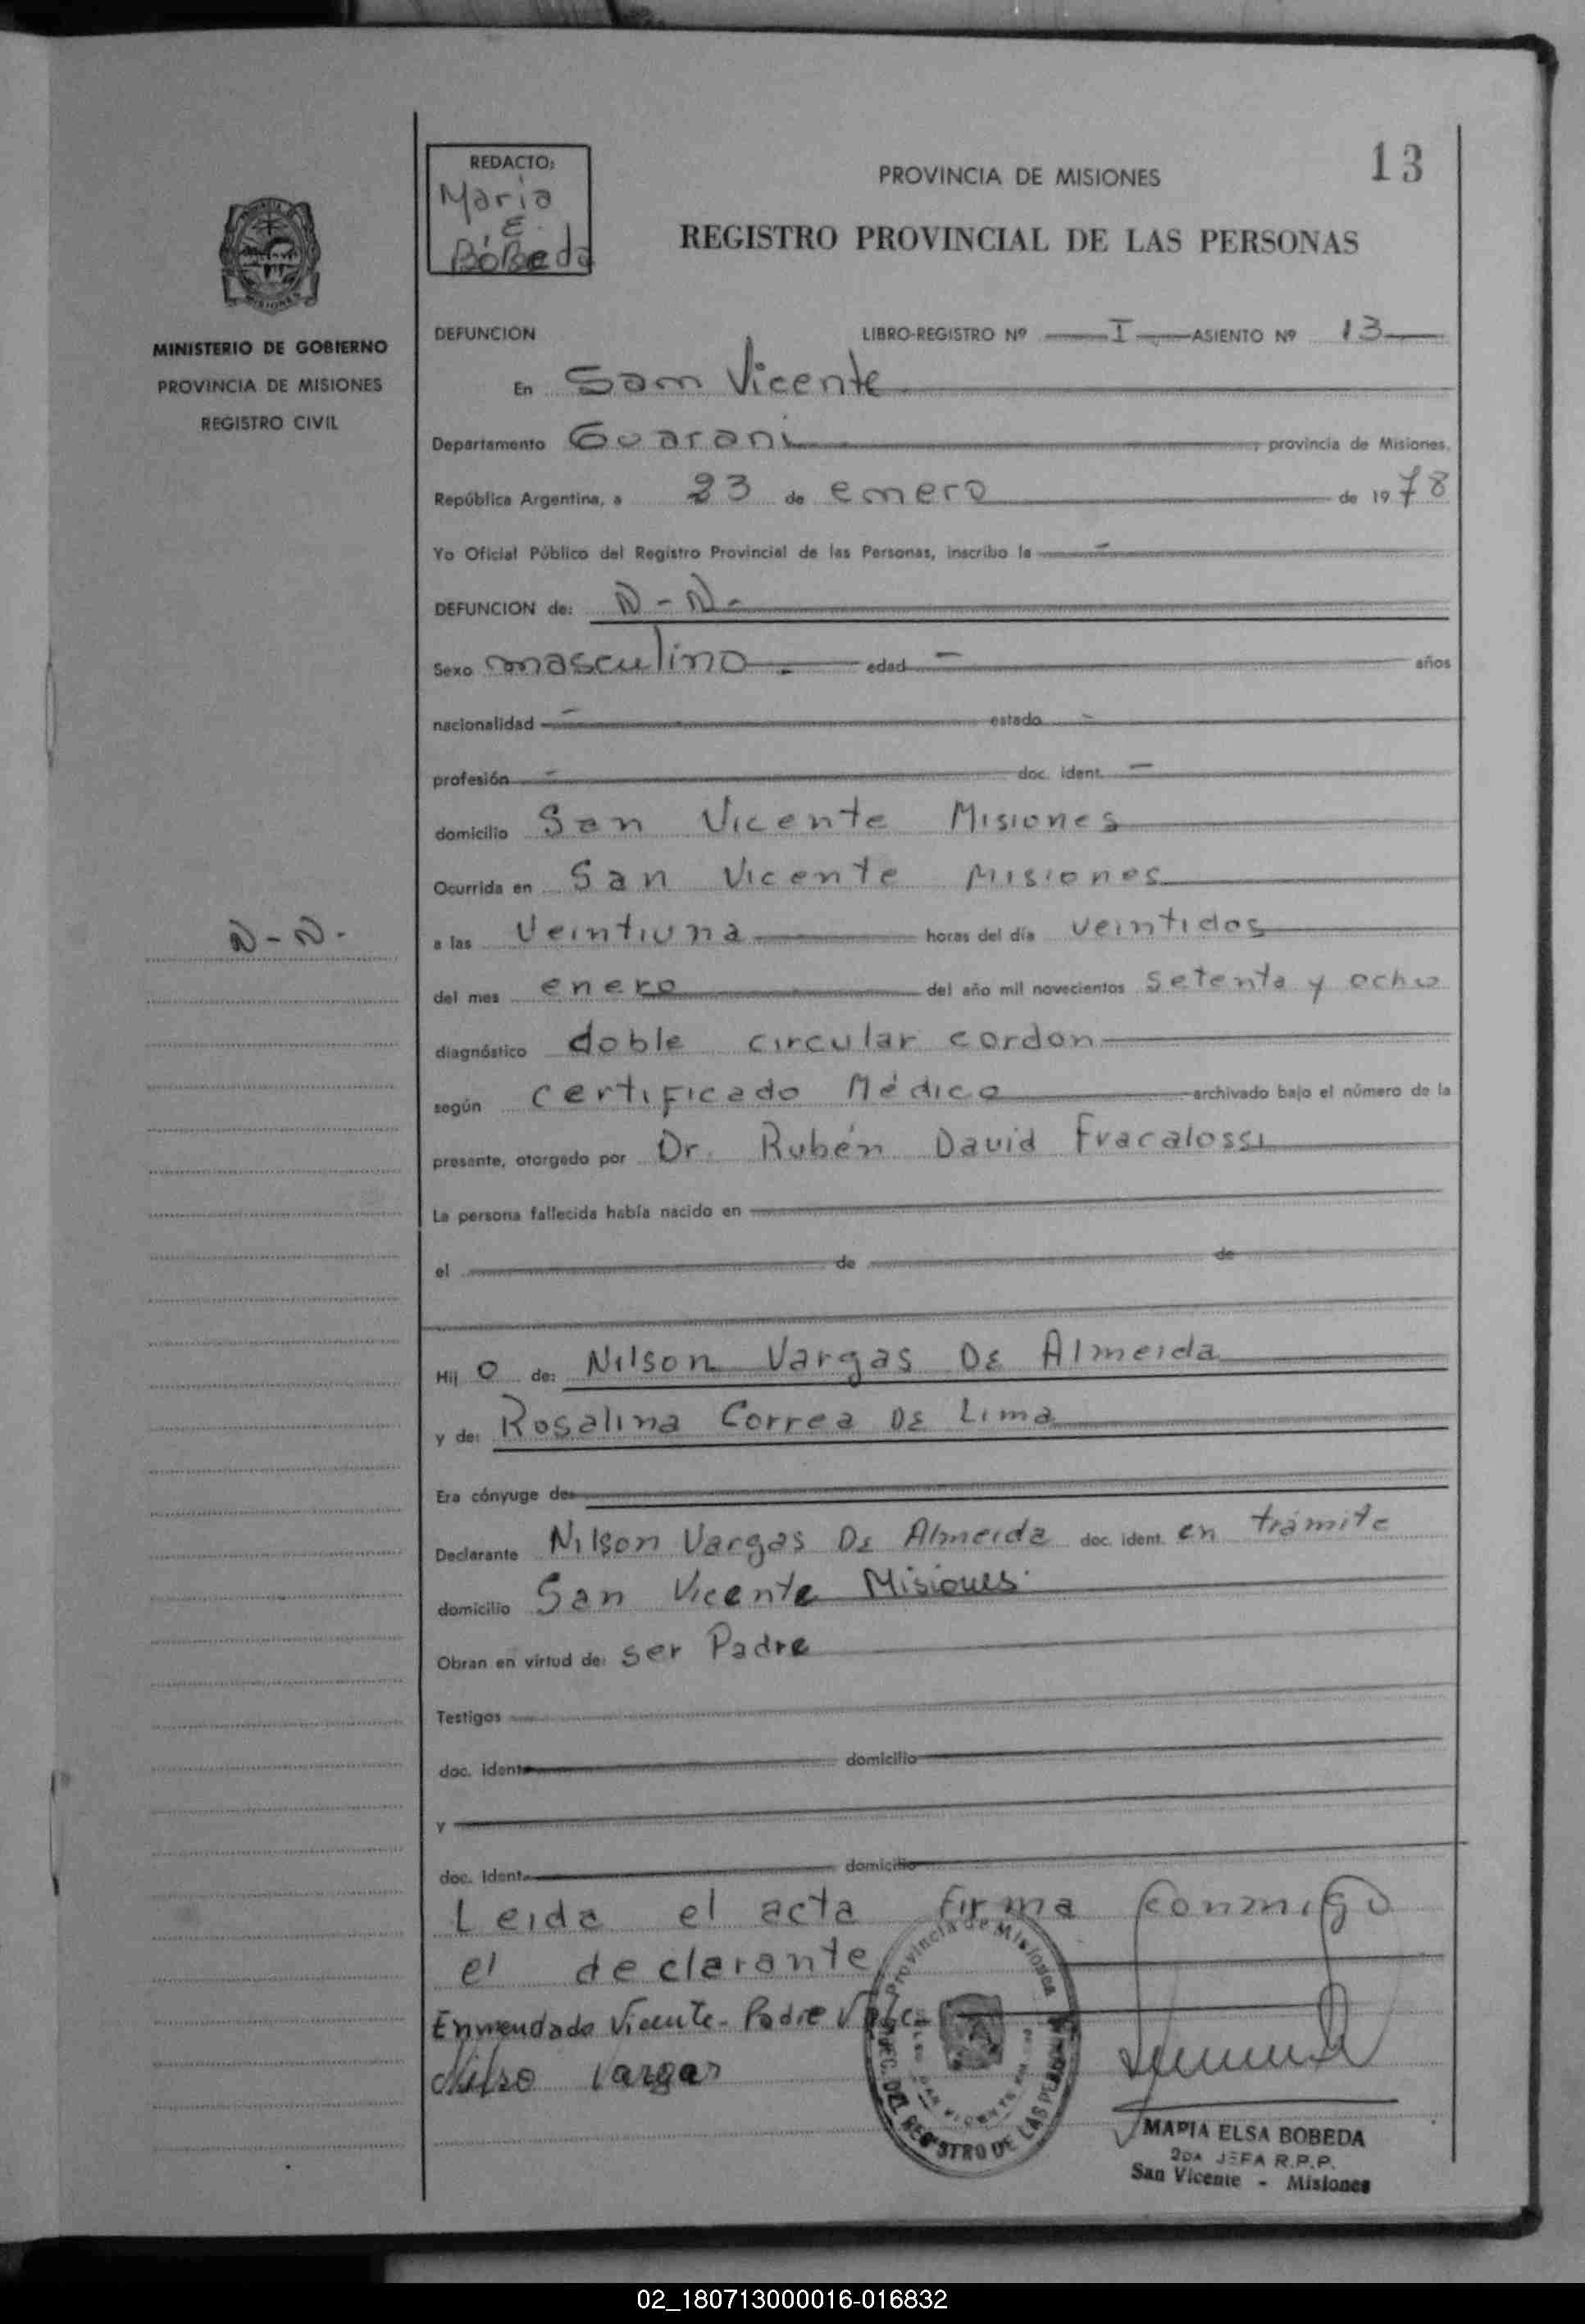 13
REDACTO:
Maria
E.
Bóbeda
PROVINCIA DE MISIONES
REGISTRO PROVINCIAL DE LAS PERSONAS
MISIONES
MINISTERIO DE GOBIERNO
PROVINCIA DE MISIONES
REGISTRO CIVIL
DEFUNCION LIBRO-REGISTRO Nº I ASIENTO Nº 13
En San Vicente
Departamento Guarani, provincia de Misiones.
República Argentina, a 23 de enero de 1978
Yo Oficial Público del Registro Provincial de las Personas, inscribo la -
DEFUNCION de: N-N-
Sexo masculino. edad - años
nacionalidad - estado -
profesión - doc. ident. -
domicilio San Vicente Misiones
Ocurrida en San Vicente Misiones
N-N-
a las Veintiuna horas del día veintidos
del mes enero del año mil novecientos setenta y ocho
diagnóstico doble circular cordon
según certificado Médico archivado bajo el número de la
presente, otorgado por Dr. Rubén David Fracalossi
La persona fallecida había nacido en
el de de
Hij o de: Nilson Vargas De Almeida
y de: Rosalina Correa De Lima
Era cónyuge de:
Declarante Nilson Vargas De Almeida doc. ident. en trámite
domicilio San Vicente Misiones.
Obran en virtud de: ser Padre
Testigos
doc. ident. domicilio
y
doc. Ident. domicilio
Leida el acta firma conmigo
el declarante
Enmendado Vicente - Padre Vale
Nilso Vargas
Provincia de Misiones
DEL REGISTRO DE LAS PERSONAS
MARIA ELSA BOBEDA
2DA JEFA R.P.P.
San Vicente - Misiones
02_180713000016-016832